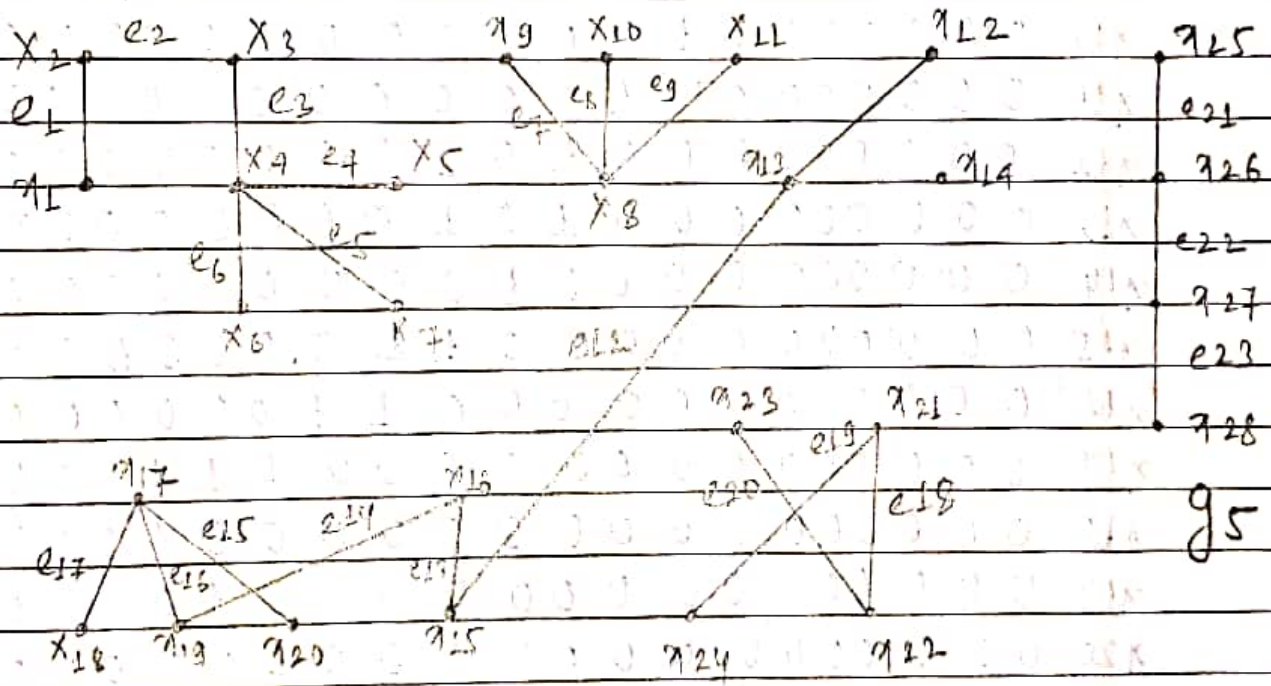 X2 e2 X3 x9 X10 X11 x12 x15
e1 e3 e7 e8 e9 e21
x1 X4 e4 X5 X8 x13 x14 x26
e6 e5 e22
X6 X7 x27
e12 e23
x23 x21 x28
x17 x16 e19
e15 e14 e20 e18 g5
e17 e16 e13
X18 x19 x20 x15 x24 x22